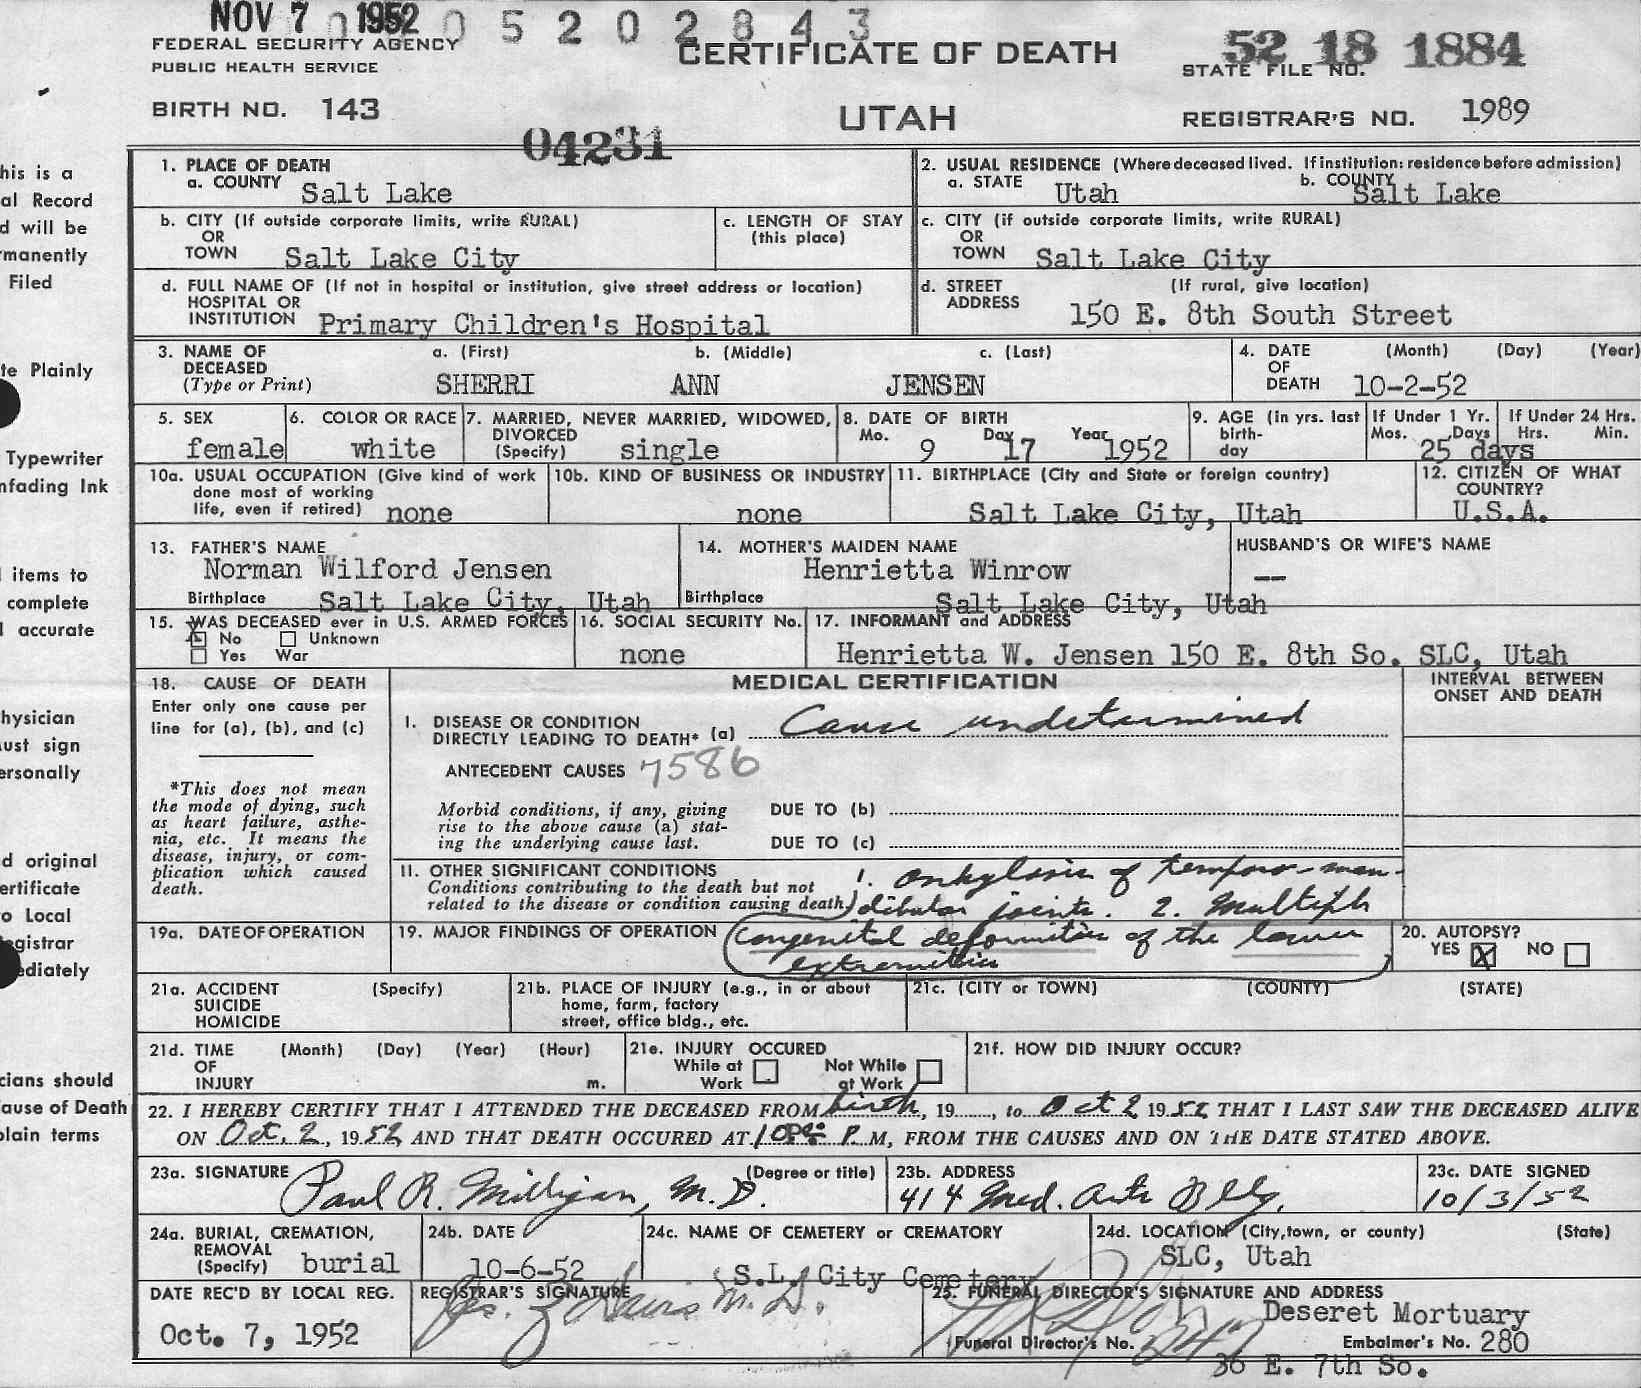 NOV 7 1952 0 5 2 0 2 8 4 3
FEDERAL SECURITY AGENCY
PUBLIC HEALTH SERVICE
CERTIFICATE OF DEATH
52 18 1884
STATE FILE NO.
BIRTH NO. 143
UTAH
REGISTRAR'S NO. 1989
04231
1. PLACE OF DEATH
a. COUNTY Salt Lake
2. USUAL RESIDENCE (Where deceased lived. If institution: residence before admission)
a. STATE Utah b. COUNTY Salt Lake
b. CITY (If outside corporate limits, write RURAL)
OR
TOWN Salt Lake City
c. LENGTH OF STAY
(this place)
c. CITY (if outside corporate limits, write RURAL)
OR
TOWN Salt Lake City
d. FULL NAME OF (If not in hospital or institution, give street address or location)
HOSPITAL OR
INSTITUTION Primary Children's Hospital
d. STREET (If rural, give location)
ADDRESS 150 E. 8th South Street
3. NAME OF a. (First) b. (Middle) c. (Last)
DECEASED
(Type or Print) SHERRI ANN JENSEN
4. DATE (Month) (Day) (Year)
OF
DEATH 10-2-52
5. SEX
female
6. COLOR OR RACE
white
7. MARRIED, NEVER MARRIED, WIDOWED,
DIVORCED
(Specify) single
8. DATE OF BIRTH
Mo. 9 Day 17 Year 1952
9. AGE (in yrs. last
birth-
day
If Under 1 Yr.
Mos. Days
25 days
If Under 24 Hrs.
Hrs. Min.
10a. USUAL OCCUPATION (Give kind of work
done most of working
life, even if retired) none
10b. KIND OF BUSINESS OR INDUSTRY
none
11. BIRTHPLACE (City and State or foreign country)
Salt Lake City, Utah
12. CITIZEN OF WHAT
COUNTRY?
U.S.A.
13. FATHER'S NAME
Norman Wilford Jensen
Birthplace Salt Lake City, Utah
14. MOTHER'S MAIDEN NAME
Henrietta Winrow
Birthplace Salt Lake City, Utah
HUSBAND'S OR WIFE'S NAME
—
15. WAS DECEASED ever in U.S. ARMED FORCES
No Unknown
Yes War
16. SOCIAL SECURITY No.
none
17. INFORMANT and ADDRESS
Henrietta W. Jensen 150 E. 8th So. SLC, Utah
18. CAUSE OF DEATH
Enter only one cause per
line for (a), (b), and (c)
*This does not mean
the mode of dying, such
as heart failure, asthe-
nia, etc. It means the
disease, injury, or com-
plication which caused
death.
MEDICAL CERTIFICATION
INTERVAL BETWEEN
ONSET AND DEATH
I. DISEASE OR CONDITION
DIRECTLY LEADING TO DEATH* (a) Cause undetermined
ANTECEDENT CAUSES 7586
Morbid conditions, if any, giving
rise to the above cause (a) stat-
ing the underlying cause last.
DUE TO (b)
DUE TO (c)
11. OTHER SIGNIFICANT CONDITIONS
Conditions contributing to the death but not
related to the disease or condition causing death.
1. ankylosis of temporo-man-
dibular joints. 2. Multiple
congenital deformities of the lower
extremities
19a. DATE OF OPERATION
19. MAJOR FINDINGS OF OPERATION
20. AUTOPSY?
YES X NO
21a. ACCIDENT (Specify)
SUICIDE
HOMICIDE
21b. PLACE OF INJURY (e.g., in or about
home, farm, factory
street, office bldg., etc.
21c. (CITY or TOWN) (COUNTY) (STATE)
21d. TIME (Month) (Day) (Year) (Hour)
OF
INJURY m.
21e. INJURY OCCURED
While at Work
Not While at Work
21f. HOW DID INJURY OCCUR?
22. I HEREBY CERTIFY THAT I ATTENDED THE DECEASED FROM birth, 19......, to Oct 2 1952 THAT I LAST SAW THE DECEASED ALIVE
ON Oct. 2, 1952 AND THAT DEATH OCCURED AT P M, FROM THE CAUSES AND ON THE DATE STATED ABOVE.
23a. SIGNATURE (Degree or title)
Paul R. Milligan, M.D.
23b. ADDRESS
414 Med. Arts Bldg.
23c. DATE SIGNED
10/3/52
24a. BURIAL, CREMATION,
REMOVAL
(Specify) burial
24b. DATE
10-6-52
24c. NAME OF CEMETERY OR CREMATORY
S.L. City Cemetery
24d. LOCATION (City, town, or county) (State)
SLC, Utah
DATE REC'D BY LOCAL REG.
Oct. 7, 1952
REGISTRAR'S SIGNATURE
M.D.
25. FUNERAL DIRECTOR'S SIGNATURE AND ADDRESS
Deseret Mortuary
Funeral Director's No. Embalmer's No. 280
36 E. 7th So.
his is a
al Record
d will be
manently
Filed
te Plainly
Typewriter
nfading Ink
items to
complete
accurate
hysician
ust sign
ersonally
d original
ertificate
o Local
egistrar
ediately
cians should
ause of Death
plain terms